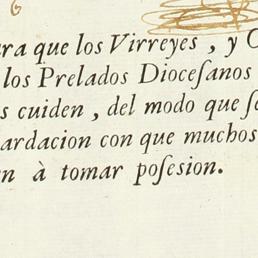 ra que los Virreyes, y
los Prelados Diocesanos
cuiden, del modo que se
ardacion con que muchos
n à tomar posesion.